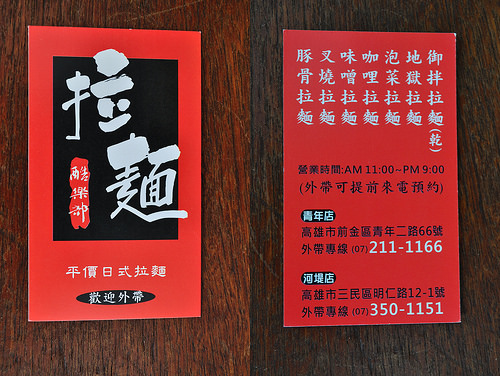 拉麵
酷樂部
平價日式拉麵
歡迎外帶
御拌拉麵(乾)
地獄拉麵
泡菜拉麵
咖哩拉麵
味噌拉麵
叉燒拉麵
豚骨拉麵
營業時間:AM 11:00~PM 9:00
(外帶可提前來電預約)
青年店
高雄市前金區青年二路66號
外帶專線 (07)211-1166
河堤店
高雄市三民區明仁路12-1號
外帶專線 (07)350-1151